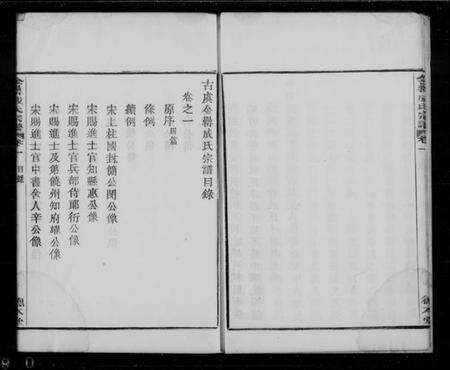 金罍成氏宗譜 卷一
古虞金罍成氏宗譜目錄
卷之一
原序 四篇
條例
續例
宋上柱國封簡公閔公像
宋賜進士官知縣惠公像
宋賜進士官兵部侍郎衍公像
宋賜進士及第饒州知府公像
宋賜進士官中書舍人辛公像
金罍成氏宗譜 卷一 目錄